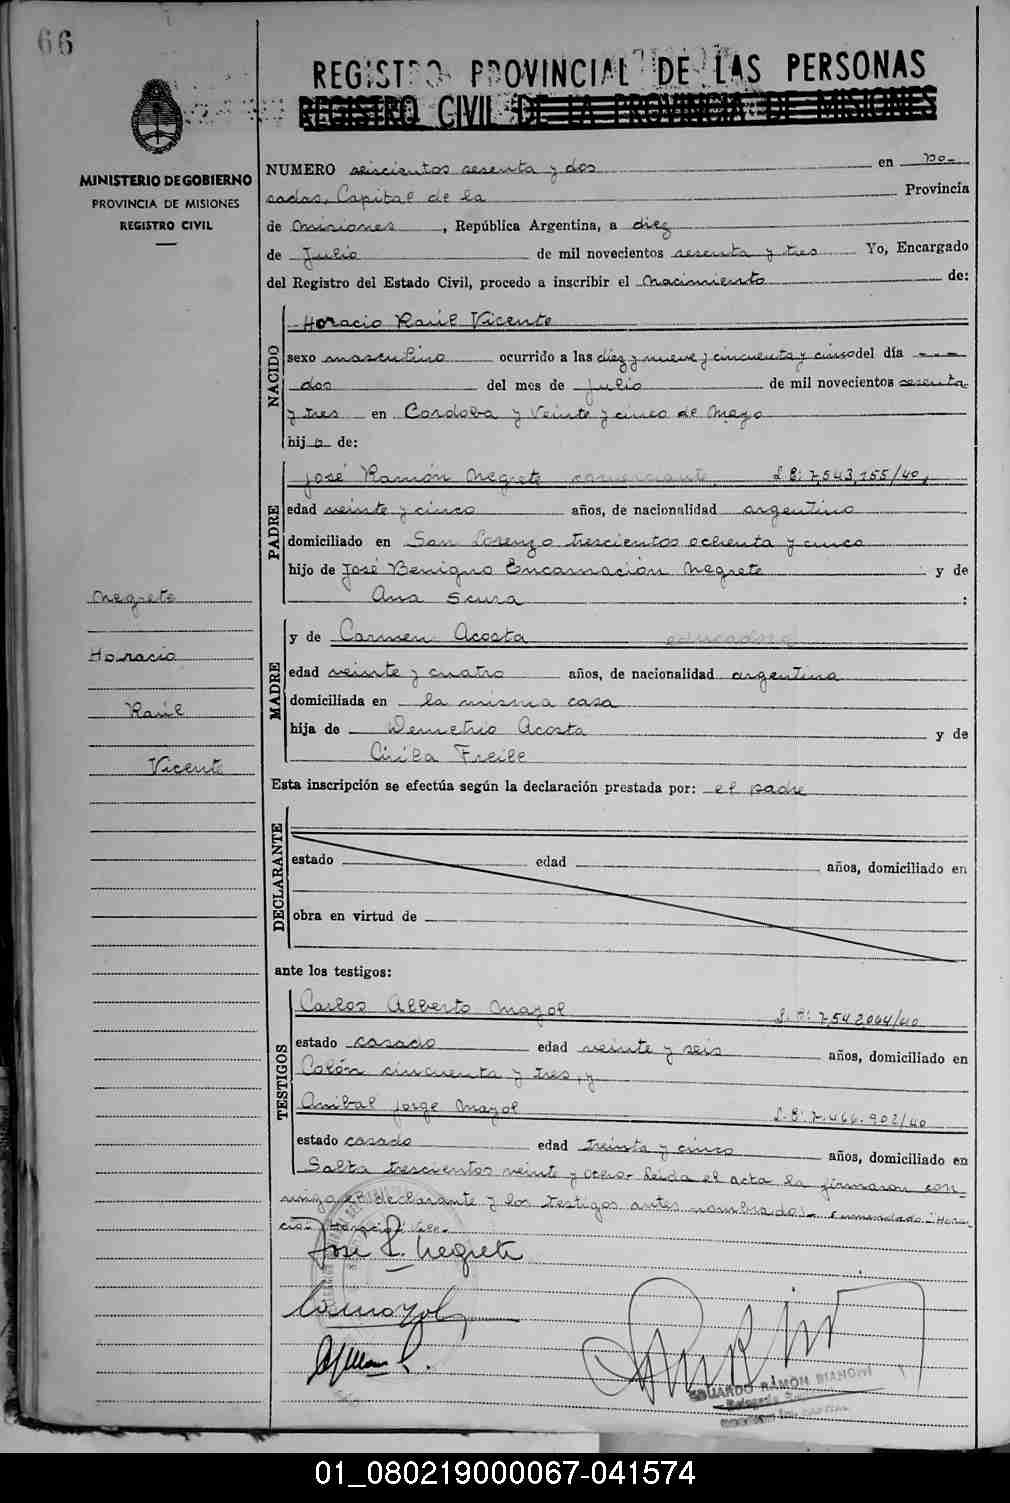 66
REGISTRO PROVINCIAL DE LAS PERSONAS
REGISTRO CIVIL DE LA PROVINCIA DE MISIONES
MINISTERIO DE GOBIERNO
PROVINCIA DE MISIONES
REGISTRO CIVIL
NUMERO seiscientos sesenta y dos en Po-
sadas, Capital de la Provincia
de Misiones, República Argentina, a diez
de Julio de mil novecientos sesenta y tres Yo, Encargado
del Registro del Estado Civil, procedo a inscribir el nacimiento de:
NACIDO
Horacio Raúl Vicente
sexo masculino ocurrido a las diez y nueve y cincuenta y cinco del día ---
dos del mes de julio de mil novecientos sesenta
y tres en Cordoba y Veinte y cinco de Mayo
hijo de:
PADRE
José Ramón Negrete comerciante L.E: 7,543,155/40,
edad veinte y cinco años, de nacionalidad argentino
domiciliado en San Lorenzo trescientos ochenta y cinco
hijo de José Benigno Encarnación Negrete y de
Ana Scura :
MADRE
y de Carmen Acosta educadora
edad veinte y cuatro años, de nacionalidad argentina
domiciliada en la misma casa
hija de Demetrio Acosta y de
Cirila Freile
Negrete
Horacio
Raúl
Vicente
Esta inscripción se efectúa según la declaración prestada por: el padre
DECLARANTE
estado edad años, domiciliado en
obra en virtud de
ante los testigos:
TESTIGOS
Carlos Alberto Mayol L.E: 7,542064/40
estado casado edad veinte y seis años, domiciliado en
Colón cincuenta y tres, y
Anibal Jorge Mayol L.E: 7.466.902/40
estado casado edad treinta y cinco años, domiciliado en
Salta trescientos veinte y ocho- Leida el acta la firmaron con-
migo el declarante y los testigos antes nombrados.- Enmendado: "Hora-
cio"- Horacio: Vale-
José R. Negrete
EDUARDO RAMÓN BIANCHI
01_080219000067-041574